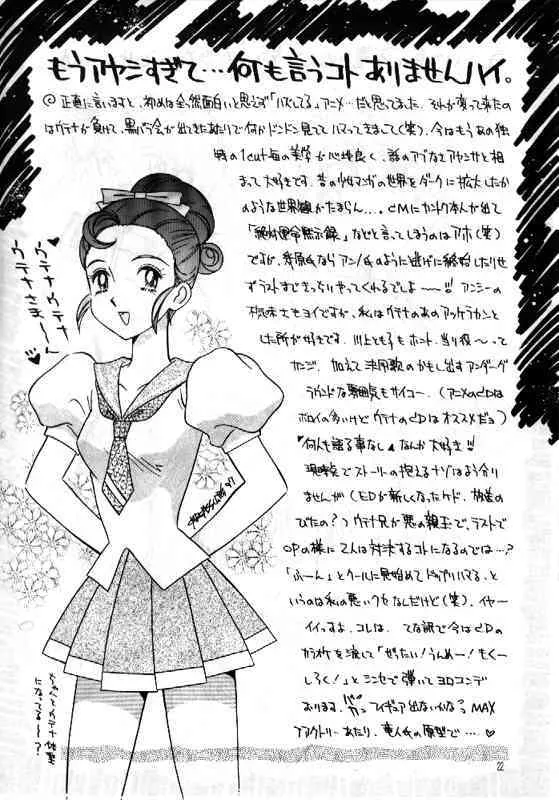 もうアヤシすぎて…何も言うコトありませんハイ。
◎正直に言いますと、初めは全然面白いと思えず「ハズしてる」アニメ…だと思ってました。それが変って来たの
はウテナが負けて、黒バラ会が出てきたあたりで何かドンドン見ててハマってきまして(笑)。今はもうあの独
特の1cut毎の美学が心地良く、話のアブなさとアヤシサと相
まって大好きです。昔の少女マンガの世界をダークに拡大したか
のような世界観がたまらん…。CMにカントク本人が出て
「絶対運命黙示録」などと言ってしまうのはアホ(笑)
ですが、幾原氏ならアンノ氏のように逃げに終始したりせ
ずラストまできっちりやってくれるでしょ〜〜!!アンシーの
もヨイですが、私はウテナのあのアッケラカンと
した所が好きです。川上とも子もホント、当り役〜って
カンジ。加えて決闘歌のかもし出すアンダーグ
ラウンドな雰囲気もサイコー。(アニメのCDは
ボロイの多いけどウテナのCDはオススメだョ)
"何人も語る事なし"なんか大好き!!
現時点でストーリーの抱えるナゾはよう分り
ませんが(EDが新しくなったケド、放送の
びたの?)ウテナ兄が悪の親玉で、ラストで
OPの様に2人は対決するコトになるのでは…?
「ふーん」とクールに見始めてドップリハマる、と
いうのは私の悪いクセなんだけど(笑)。イヤー
イイっすよ、コレは。てな訳で今はCDの
カラオケを流して「ぜったい!うんめー!もくー
しろく!」とシンセで弾いてヨロコンデ
おります。バカッ フィギュア出ないかな?MAX
ファクトリーあたり、竜人氏の原型で…♡
ウテナウテナ
ウテナさま〜〜ん
ちゃんとウテナ体型
になってる〜?
22